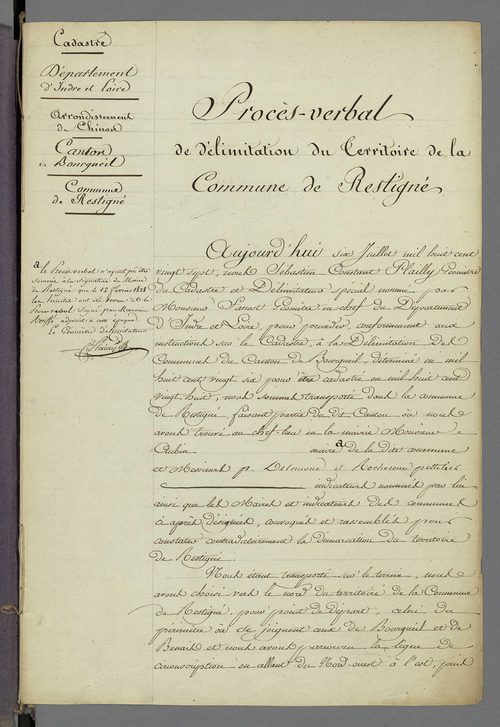 Cadastre
Département
d'Indre et Loire
Arrondissement
de Chinon
Canton
de Bourgueil
Commune
de Restigné
a le Procès verbal n'ayant pu être
à la Signature du Maire
de Restigné que le 12 février 1828
les limites ont été
signé par Monsieur
adjoint à cette époque
Le Géomètre délimitateur
Plailly
Procès-verbal
de délimitation du Territoire de la
Commune de Restigné
Aujourd'hui six Juillet mil huit cent
vingt sept, nous Sébastien Constant Plailly Géomètre
du Cadastre et Délimitateur spécial nommé par
Monsieur Géomètre en chef du Département
d'Indre et Loire, pour procéder, conformément aux
instructions sur le Cadastre, à la Délimitation des
Communes du Canton de Bourgueil, déterminé en mil
huit cent vingt six pour être cadastré en mil huit cent
vingt huit, nous sommes transporté dans la commune
de Restigné, faisant partie du dit Canton où nous
avons trouvé au chef-lieu en la mairie Monsieur
Aubin maire a de la dite commune
et Messieurs p. et Rochereau pelletier
indicateurs nommés par lui
ainsi que les Maires et indicateurs des communes
ci après désignées, convoqués et rassemblés pour
constater contradictoirement la démarcation du territoire
de Restigné.
Nous étant transporté sur le terrain, nous
avons choisi vers le nord du territoire de la Commune
de Restigné, pour point de départ, celui du
périmètre où se joignent ceux de Bourgueil et de
Benais et nous avons parcouru la ligne de
circonscription en allant du Nord-ouest à l'est, pour